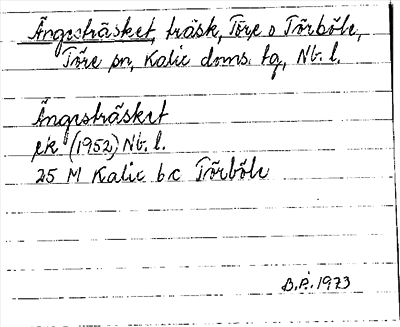 Ängesträsket, träsk, Töre o Törböle,
Töre sn, Kalix doms. tg, Nb. l.
Ängesträsket
ek (1952) Nb. l.
25 M Kalix b c Törböle
B.P. 1973